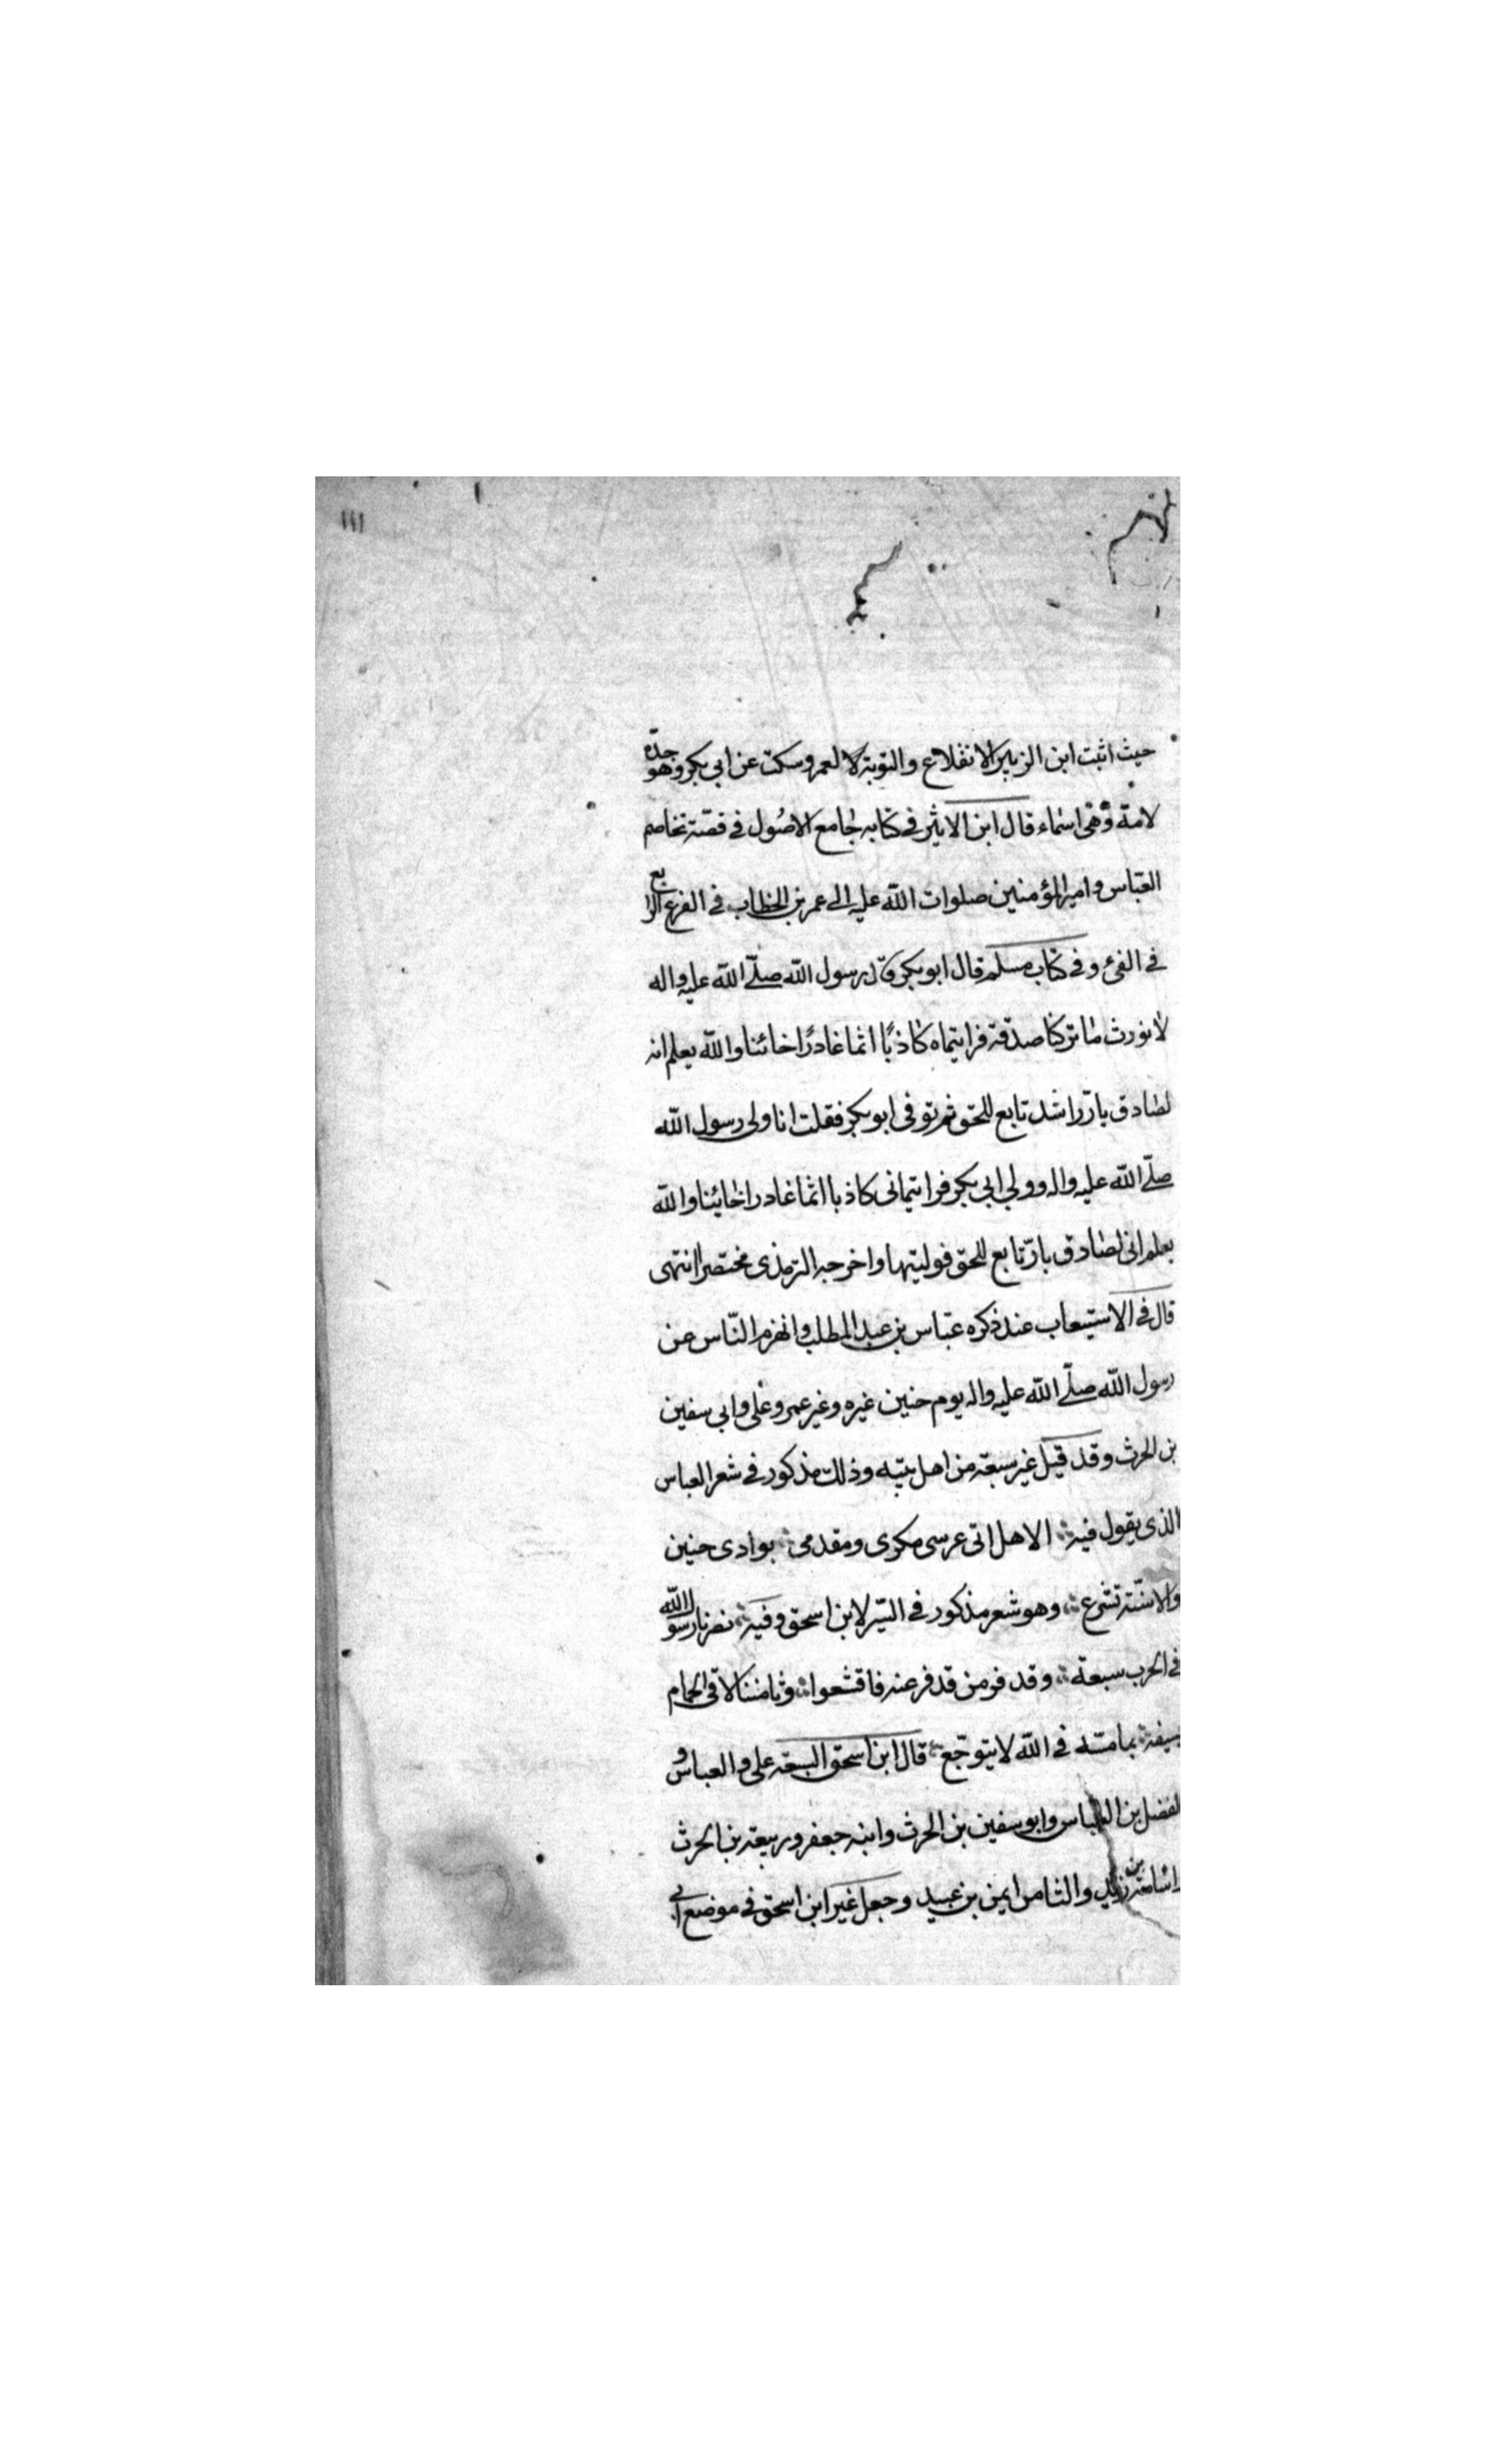 ١١١
حيث اثبت ابن الزبير الانقلاع والتوبة لا لعمر وسكت عن ابي بكر وهو جدّه
لامة وهى اسماء قال ابن الاثير فى كتابه جامع الاصُول فى قصّة تخاصم
العبّاس وامير المؤمنين صلوات اللّه عليه الى عمر بن الخطاب فى الفرع الرابع
فى الفئ وفى كتاب مسلم قال ابو بكر قال رسول اللّه صلّى اللّه عليه واله
لا نورث ما تركنا صدقة فرايتماه كاذبًا اثما غادرًا خائنا واللّه يعلم انه
لصادق بارّ راشد تابع للحق ثم توفى ابو بكر فقلت انا ولى رسول اللّه
صلّى اللّه عليه واله وولى ابي بكر فرايتمانى كاذبا اثما غادرا خائنا واللّه
يعلم انى لصادق بارّ تابع للحق فوليتها واخرجه الترمذى مختصرا انتهى
قال فى الاستيعاب عند ذكره عبّاس بن عبد المطلب وانهزم النّاس عن
رسول اللّه صلّى اللّه عليه واله يوم حنين غيره وغير عمر وعلى وابي سفين
بن الحرث وقد قيل غير سبعة من اهل بيته وذلك مذكور فى شعر العباس
الذى يقول فيه الا هل اتى عرسى مكرى ومقدمى بوادى حنين
والاسنّة تشرع وهو شعر مذكور فى السّير لابن اسحق وفيه نصرنا رسول اللّه
فى الحرب سبعة وقد فر من قد فر عنه فاقشعوا وثامننا لاقى الحمام
بسيفه بما مسّه فى اللّه لا يتوجّع قال ابن اسحق السبعة على والعباس و
الفضل بن العباس وابو سفين بن الحرث وابنه جعفر وربيعة بن الحرث
واسامة بن زيد والثامن ايمن بن عبيد وجعل غير ابن اسحق فى موضع ابي